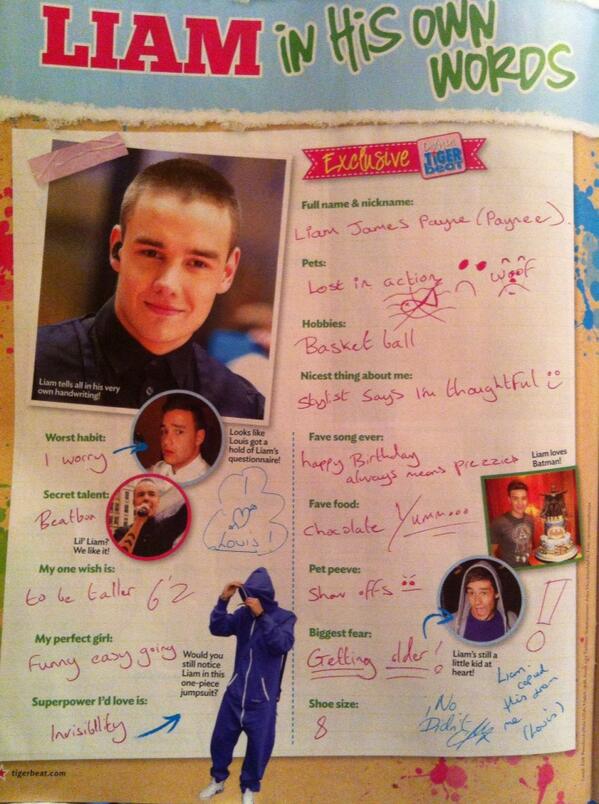 LIAM IN HIS OWN WORDS
Exclusive
TIGER BEAT
Liam tells all in his very
own handwriting!
Full name & nickname:
Liam James Payne (Paynee).
Pets:
Lost in action
woof
Hobbies:
Basket ball
Nicest thing about me:
Stylist says I'm thoughtful
Worst habit:
I worry
Looks like
Louis got a
hold of Liam's
questionnaire!
I
Louis!
Secret talent:
Beatbox
Lil' Liam?
We like it!
My one wish is:
to be taller 6'2
My perfect girl:
Funny easy going
Would you
still notice
Liam in this
one-piece
jumpsuit?
Superpower I'd love is:
Invisibility
Fave song ever:
happy Birthday
always means prezzies
Liam loves
Batman!
Fave food:
Chocolate Yummooo
Pet peeve:
Show offs
Biggest fear:
Getting older!
Liam's still a
little kid at
heart!
Shoe size:
8
No
Didn't
Liam:
copied
this from
me
(Louis)
tigerbeat.com